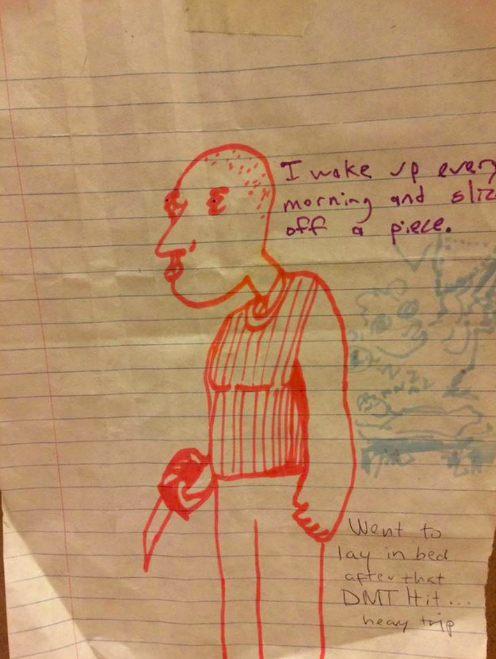 I wake up every
morning and slice
off a piece.
Went to
lay in bed
after that
DMT Hit...
heavy trip